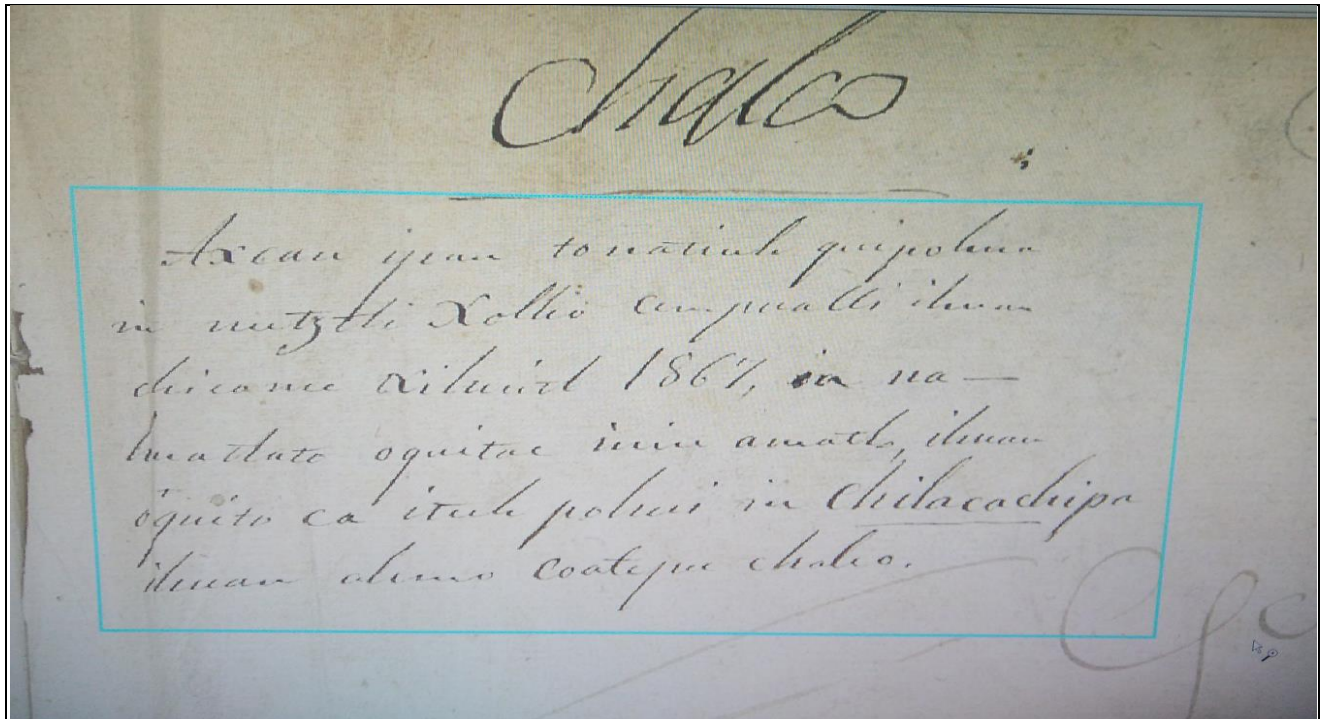 Chalco
Axcan ipan tonatiuh quipohua
in metztli Xollio cempualli ihuan
chicome xihuitl 1867, in na—
huatlato oquitac inin amatl, ihuan
oquito ca itech pohui in Chilacachipa
ihuan ahmo Coatepec chalco.